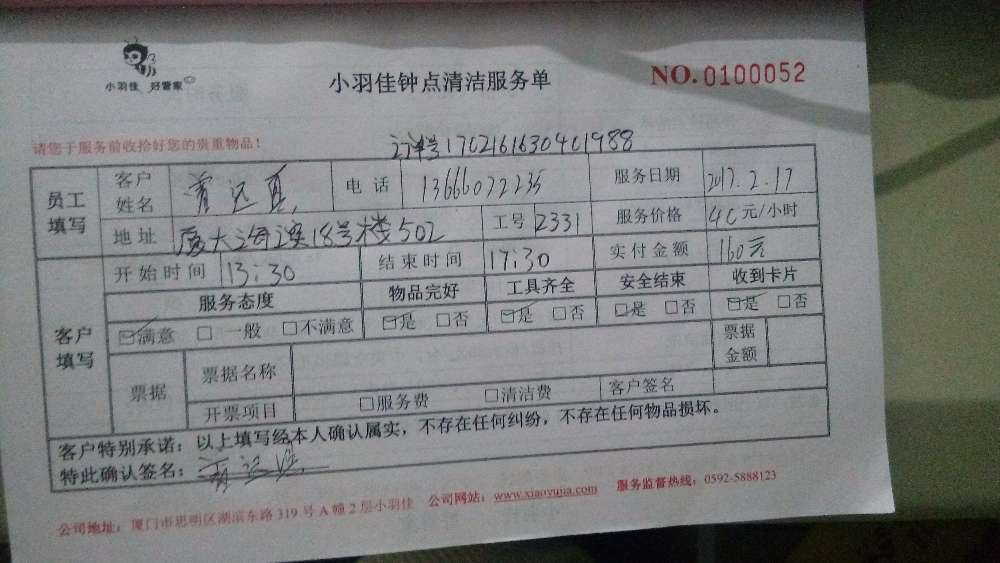 小羽佳 好管家
小羽佳钟点清洁服务单
NO.0100052
请您于服务前收拾好您的贵重物品！
订单号1702161630401988
员工填写 客户姓名 电话 13666072235 服务日期 2017.2.17
地址 厦大海滨18号楼502 工号 2331 服务价格 40元/小时
客户填写 开始时间 13:30 结束时间 17:30 实付金额 160元
服务态度 物品完好 工具齐全 安全结束 收到卡片
☑满意 □一般 □不满意 ☑是 □否 ☑是 □否 ☑是 □否 ☑是 □否
票据 票据名称 票据金额
开票项目 □服务费 □清洁费 客户签名
客户特别承诺：以上填写经本人确认属实，不存在任何纠纷，不存在任何物品损坏。
特此确认签名：
公司地址：厦门市思明区湖滨东路319号A幢2层小羽佳 公司网站：www.xiaoyujia.com 服务监督热线：0592-5888123